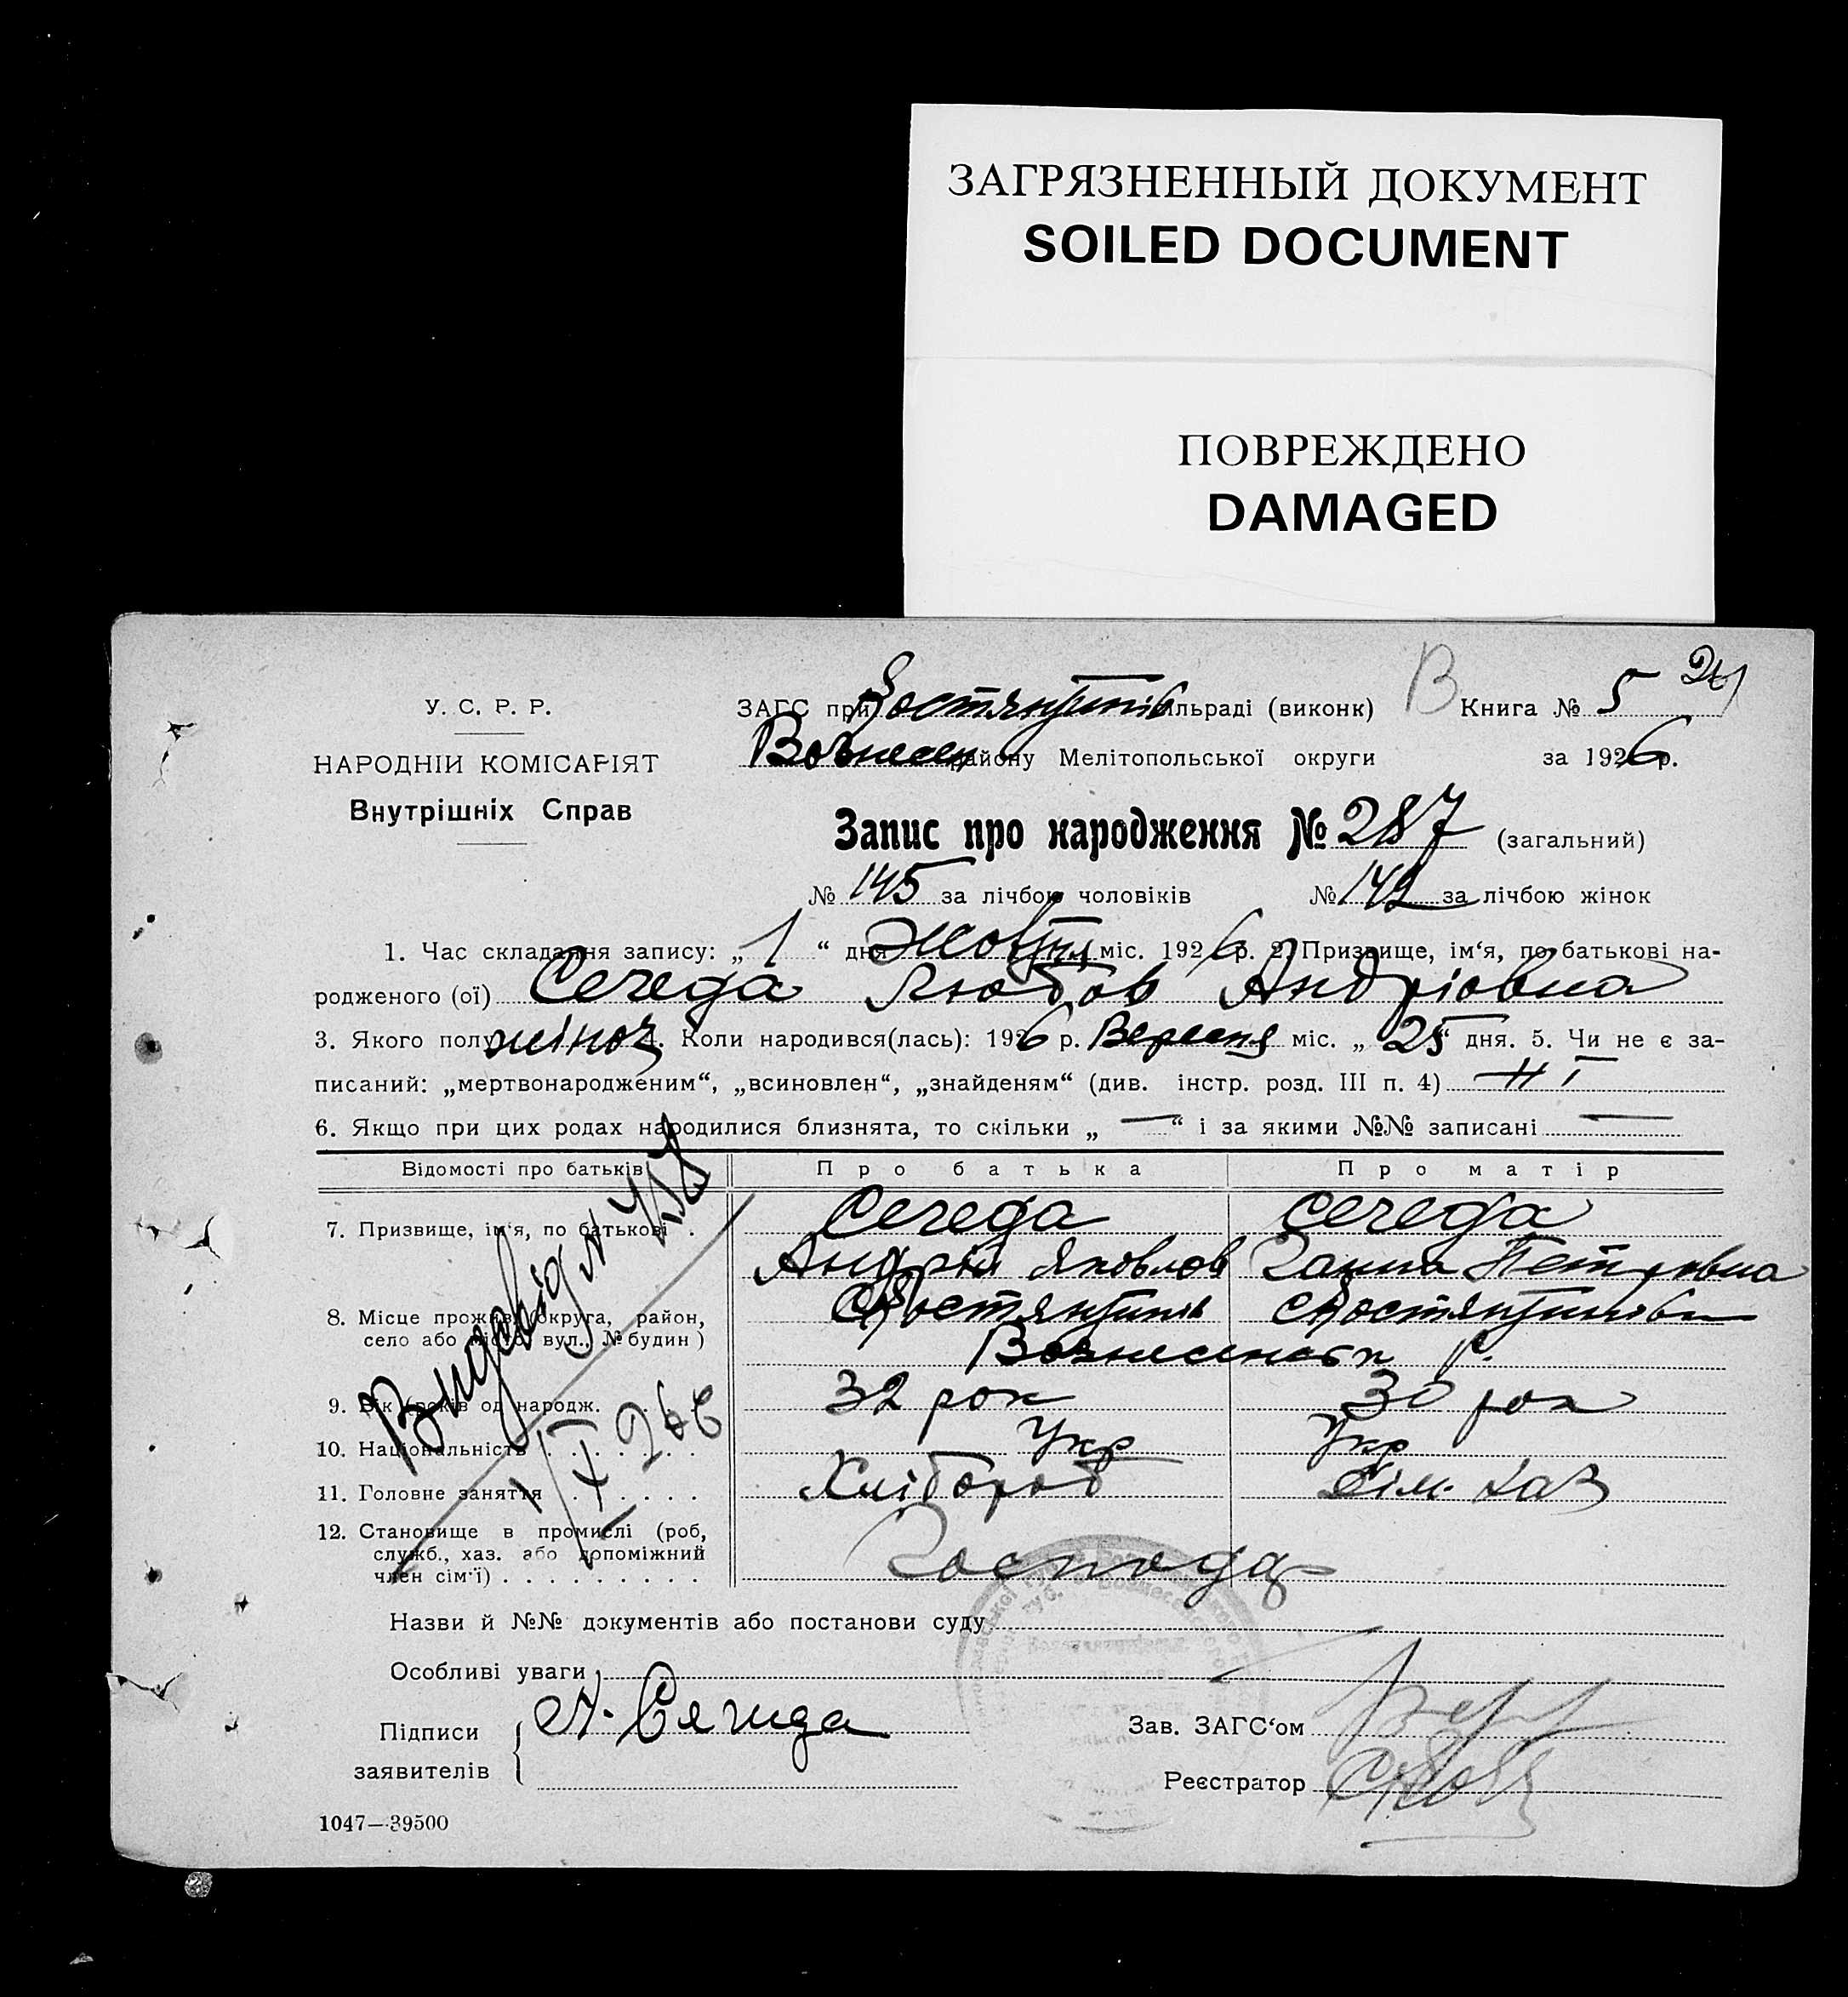 ЗАГРЯЗНЕННЫЙ ДОКУМЕНТ
SOILED DOCUMENT
ПОВРЕЖДЕНО
DAMAGED
У. С. Р. Р.
НАРОДНІЙ КОМІСАРІЯТ
Внутрішніх Справ
ЗАГС при Костянтинів ільраді (виконк) В Книга № 5
Вознесен району Мелітопольської округи за 1926 р.
Запис про народження № 287 (загальний)
№ 145 за лічбою чоловіків № 142 за лічбою жінок
1. Час складання запису: „ 1 “ дня Жовтня міс. 1926 р. 2. Призвище, ім‘я, по батькові на-
родженого (ої) Середа Любов Андріовна
3. Якого полу жіноч 4. Коли народився(лась): 1926 р. Вересня міс. „ 25 “ дня. 5. Чи не є за-
писаний: „мертвонародженим“, „всиновлен“, „знайденям“ (див. інстр. розд. III п. 4) Ні
6. Якщо при цих родах народилися близнята, то скільки „ — “ і за якими №№ записані —
Відомості про батьків Про батька Про матір
7. Призвище, ім‘я, по батькові . Середа Середа
Андрій Яковлов Ганна Петровна
8. Місце прожив. (округа, район, Костянтинів Костянтинівки
село або місто, вул., № будин )
Вознесенськ р.
9. Вік (років од народж. 32 рок 30 рок
10. Національність Укр Укр
11. Головне заняття Хлібороб Сім. хаз
12. Становище в промислі (роб,
служб., хаз. або допоміжний
член сім‘ї) Господар
Видовід №
1/X 926
Назви й №№ документів або постанови суду
Особливі уваги
Підписи А. Середа
заявителів
Зав. ЗАГС‘ом
Реєстратор
1047—39500